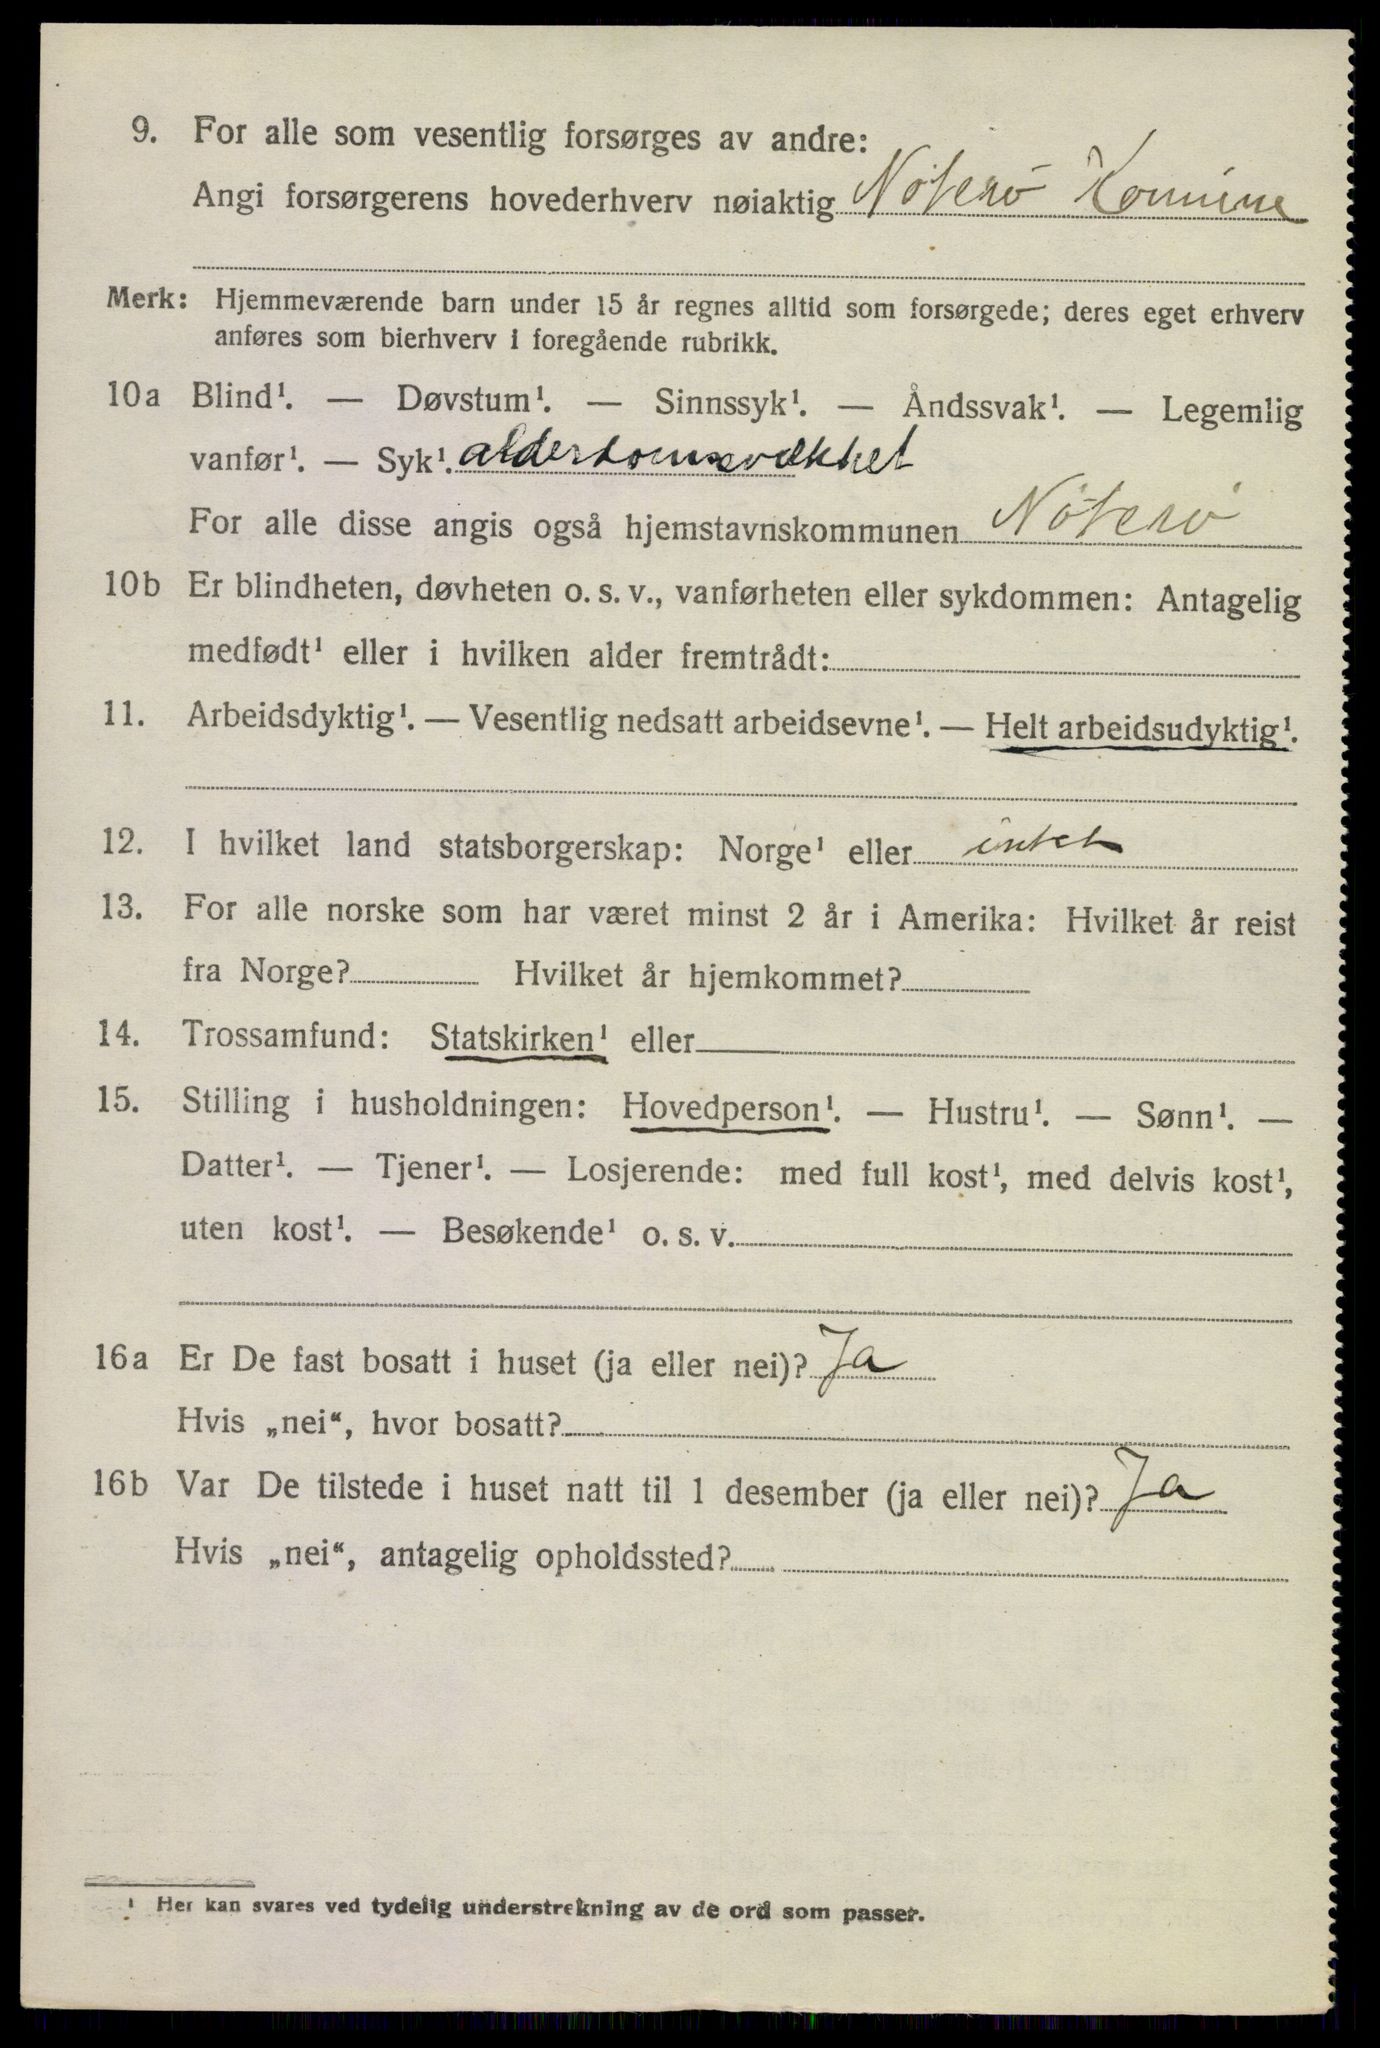 9. For alle som vesentlig forsørges av andre:
Angi forsørgerens hovederhverv nøiaktig Nøterø Komune
Merk: Hjemmeværende barn under 15 år regnes alltid som forsørgede; deres eget erhverv
anføres som bierhverv i foregående rubrikk.
10a Blind¹. — Døvstum¹. — Sinnssyk¹. — Åndssvak¹. — Legemlig
vanfør¹. — Syk¹. alderdomsvækhet
For alle disse angis også hjemstavnskommunen Nøterø
10b Er blindheten, døvheten o. s. v., vanførheten eller sykdommen: Antagelig
medfødt¹ eller i hvilken alder fremtrådt:
11. Arbeidsdyktig¹. — Vesentlig nedsatt arbeidsevne¹. — Helt arbeidsudyktig¹.
12. I hvilket land statsborgerskap: Norge¹ eller intet
13. For alle norske som har været minst 2 år i Amerika: Hvilket år reist
fra Norge? Hvilket år hjemkommet?
14. Trossamfund: Statskirken¹ eller
15. Stilling i husholdningen: Hovedperson¹. — Hustru¹. — Sønn¹. —
Datter¹. — Tjener¹. — Losjerende: med full kost¹, med delvis kost¹,
uten kost¹. — Besøkende¹ o. s. v.
16a Er De fast bosatt i huset (ja eller nei)? Ja
Hvis „nei“, hvor bosatt?
16b Var De tilstede i huset natt til 1 desember (ja eller nei)? Ja
Hvis „nei“, antagelig opholdssted?
¹ Her kan svares ved tydelig understrekning av de ord som passer.